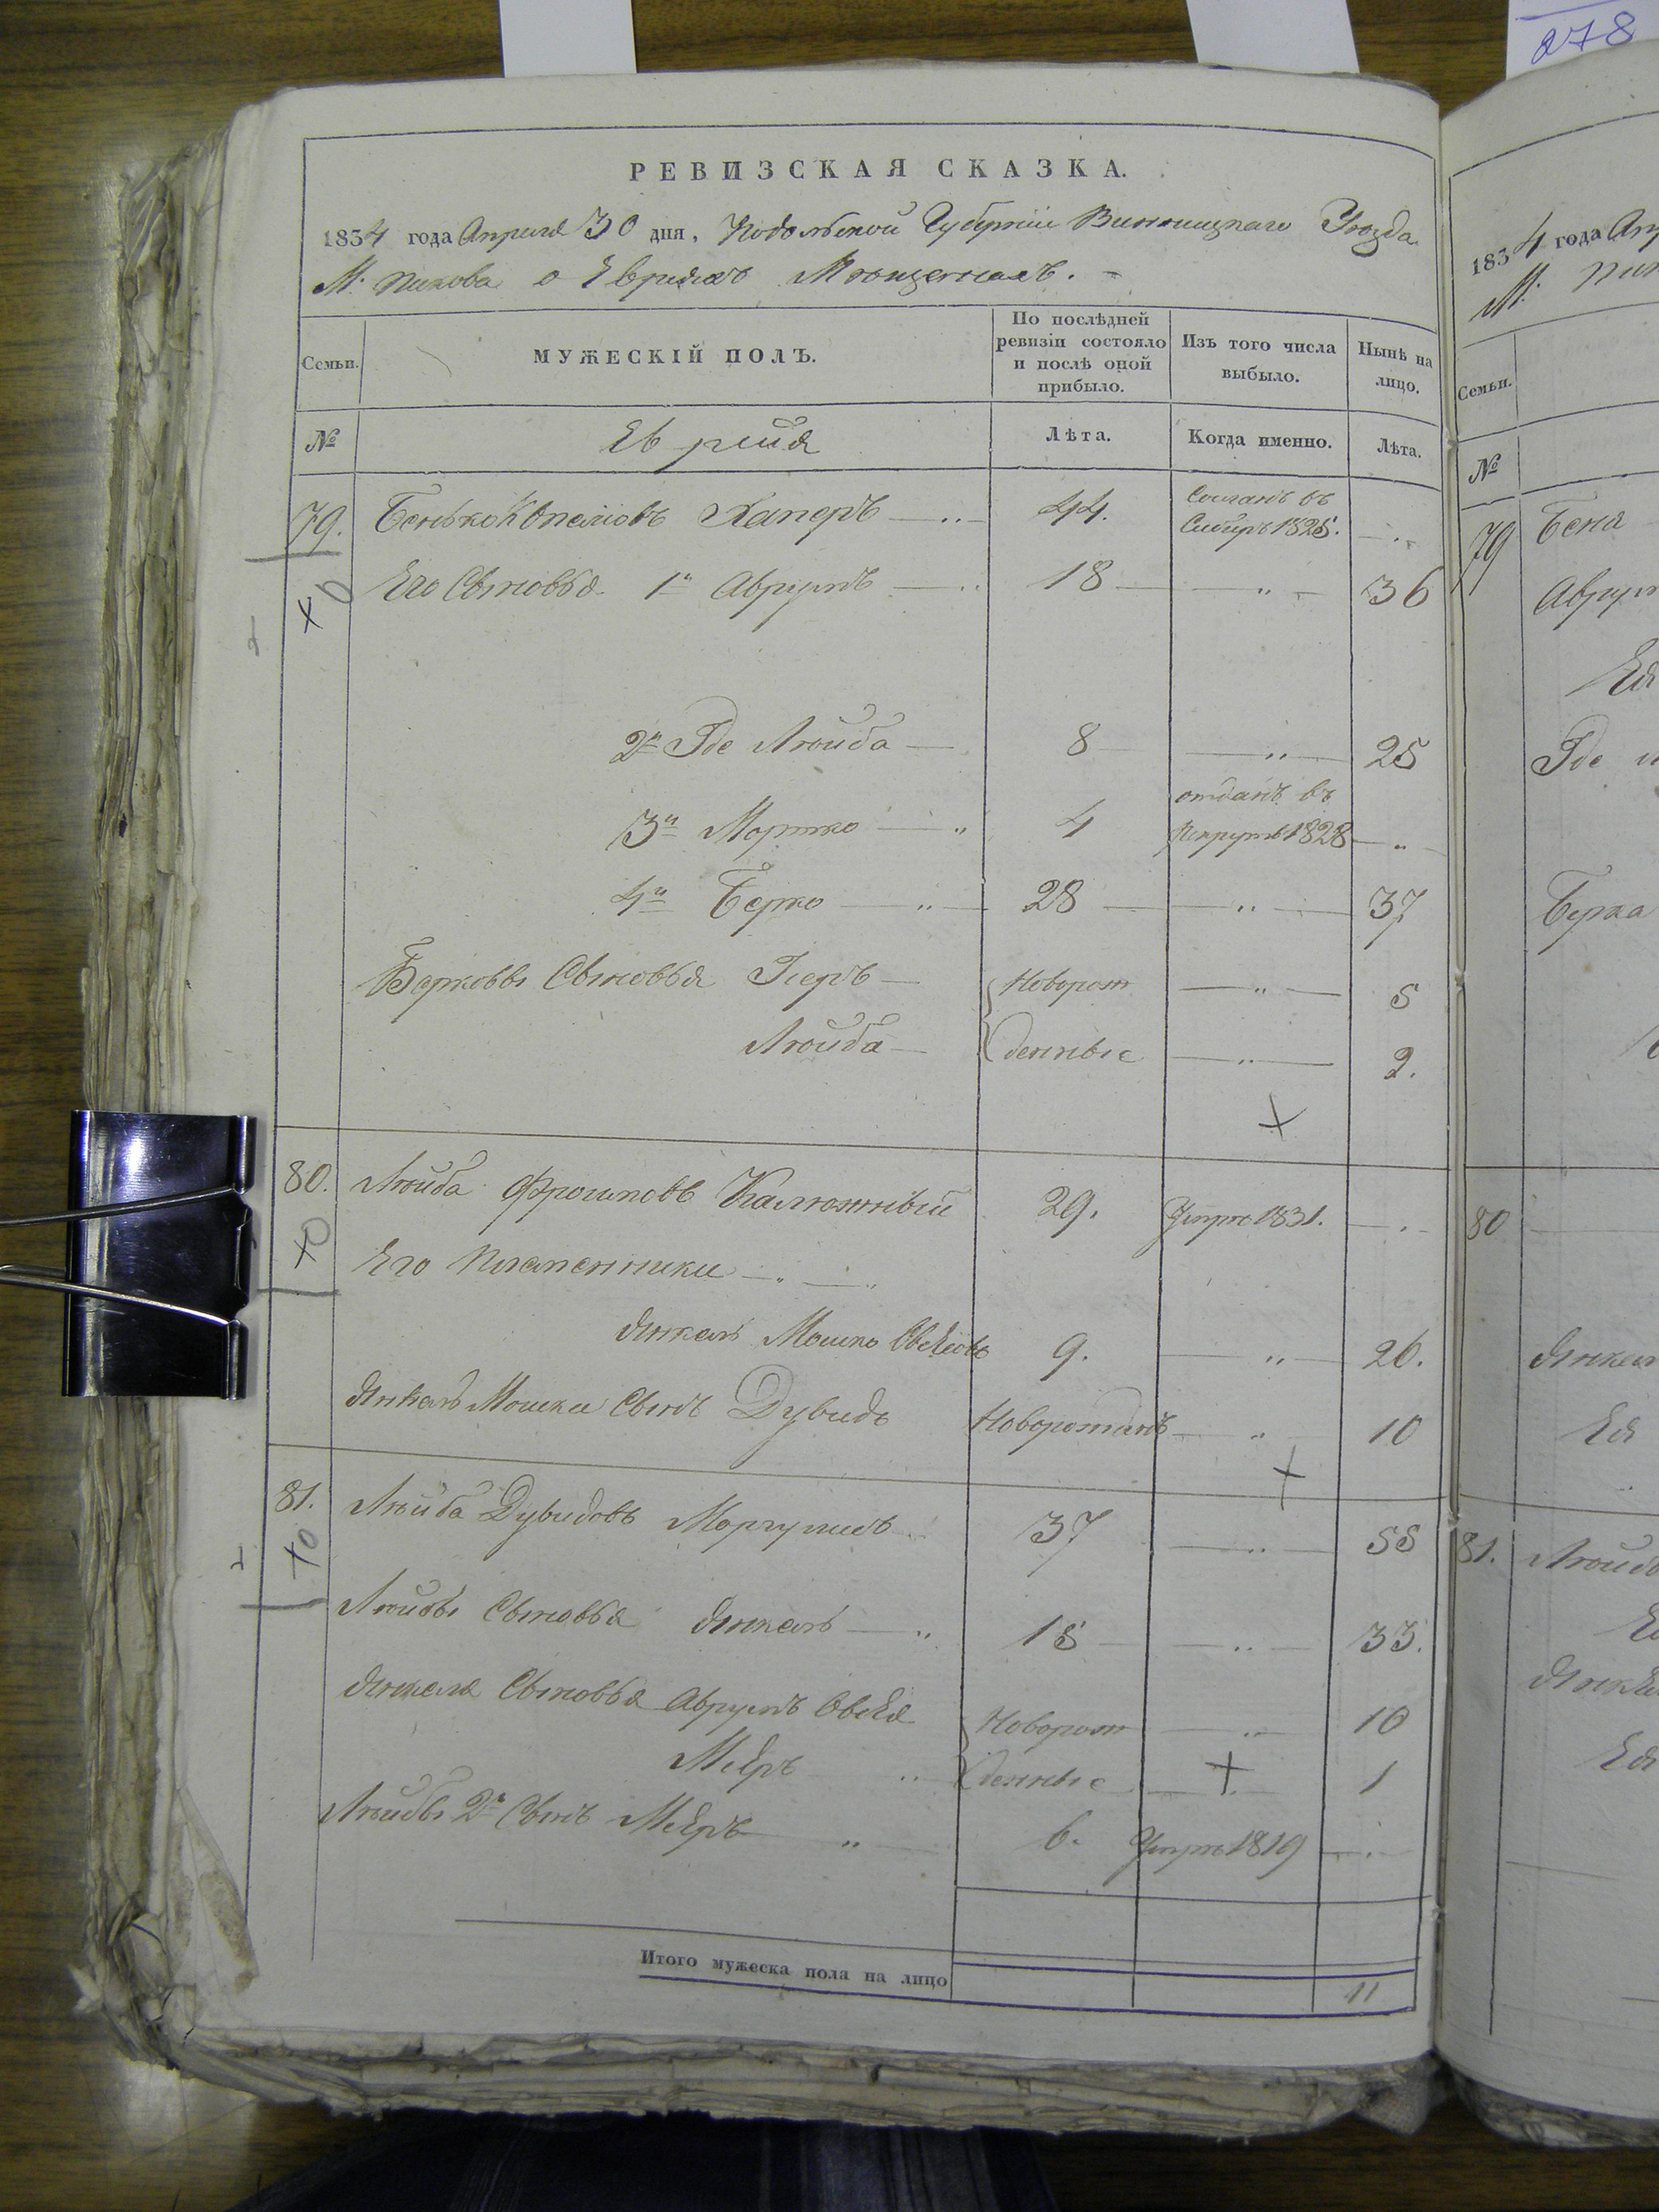 278
РЕВИЗСКАЯ СКАЗКА.
1834 года Апреля 30 дня, Подольской Губернiи Винницкаго Уѣзда
М. Пикова о Евреяхъ Мѣщанахъ.
Семьи.
МУЖЕСКІЙ ПОЛЪ.
По послѣдней ревизіи состояло и послѣ оной прибыло.
Изъ того числа выбыло.
Нынѣ на лицо.
№
Евреи
Лѣта.
Когда именно.
Лѣта.
79. Бенько Хаперъ 44. Сосланъ въ Сибирь 1825.
Его Сыновья 1й Аврумъ 18 36
2й Лейба 8 25
3й Мортко 4 отданъ въ рекруты 1828
4й Берко 28 37
Берковы Сыновья Новорож 5
Лейба денные 2.
80. Лейба Калюжный 29. Умре 1831.
Его племенники
Янкель Мошко 9. 26.
Янкель Мошки Сынъ Дувидъ Новорожденъ 10
81. Лейба Дувидовъ Маргулисъ 37 55
Лейбы Сыновья Янкель 15 33.
Янкеля Сыновья Аврумъ Новорож 10
Меєръ денные 1
Лейбы 2й Сынъ Меєръ 6. Умре 1819
Итого мужеска пола на лицо 11
1834 года
М.
Семьи.
№
79 Бена
Аврум
Ея
Берка
80
Янкел
Ея
81. Лейб
Янке
Ея